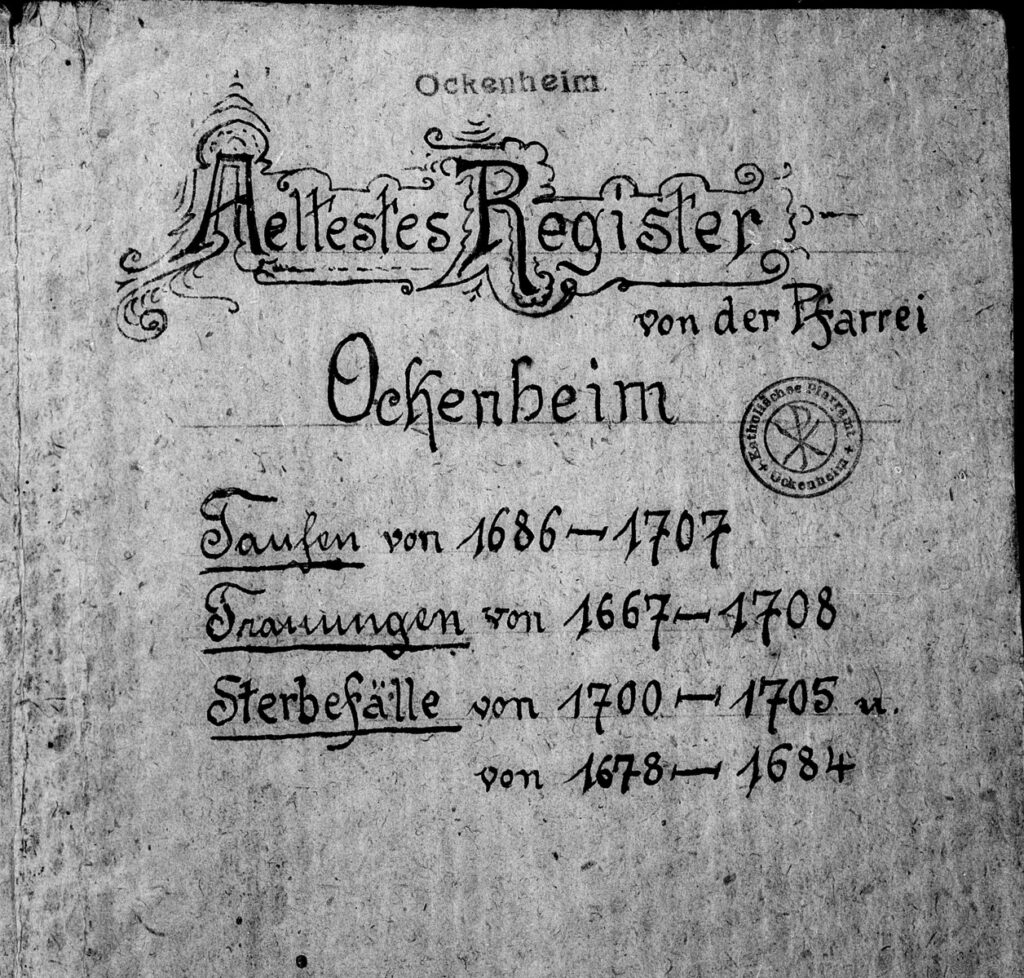 Ockenheim
Aeltestes Register
von der Pfarrei
Ockenheim
Katholisches Pfarramt
+ Ockenheim +
Taufen von 1686 – 1707
Trauungen von 1667 – 1708
Sterbefälle von 1700 – 1705 u.
von 1678 – 1684